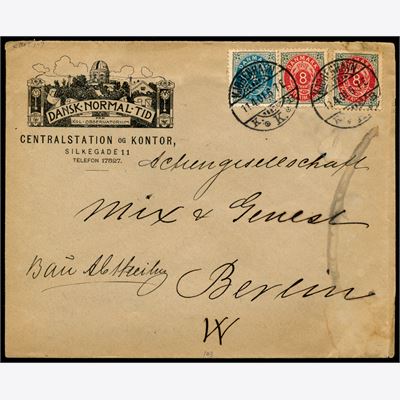 DANSK·NORMAL·TID
KGL·OBSERVATORIUM
CENTRALSTATION OG KONTOR,
SILKEGADE 11
TELEFON 17827.
DANMARK
DANMARK 8
8
KJØBENHAVN
K. K.
Actiengesellschaft
Mix & Genest
Bau Abtheilung
Berlin
W
103